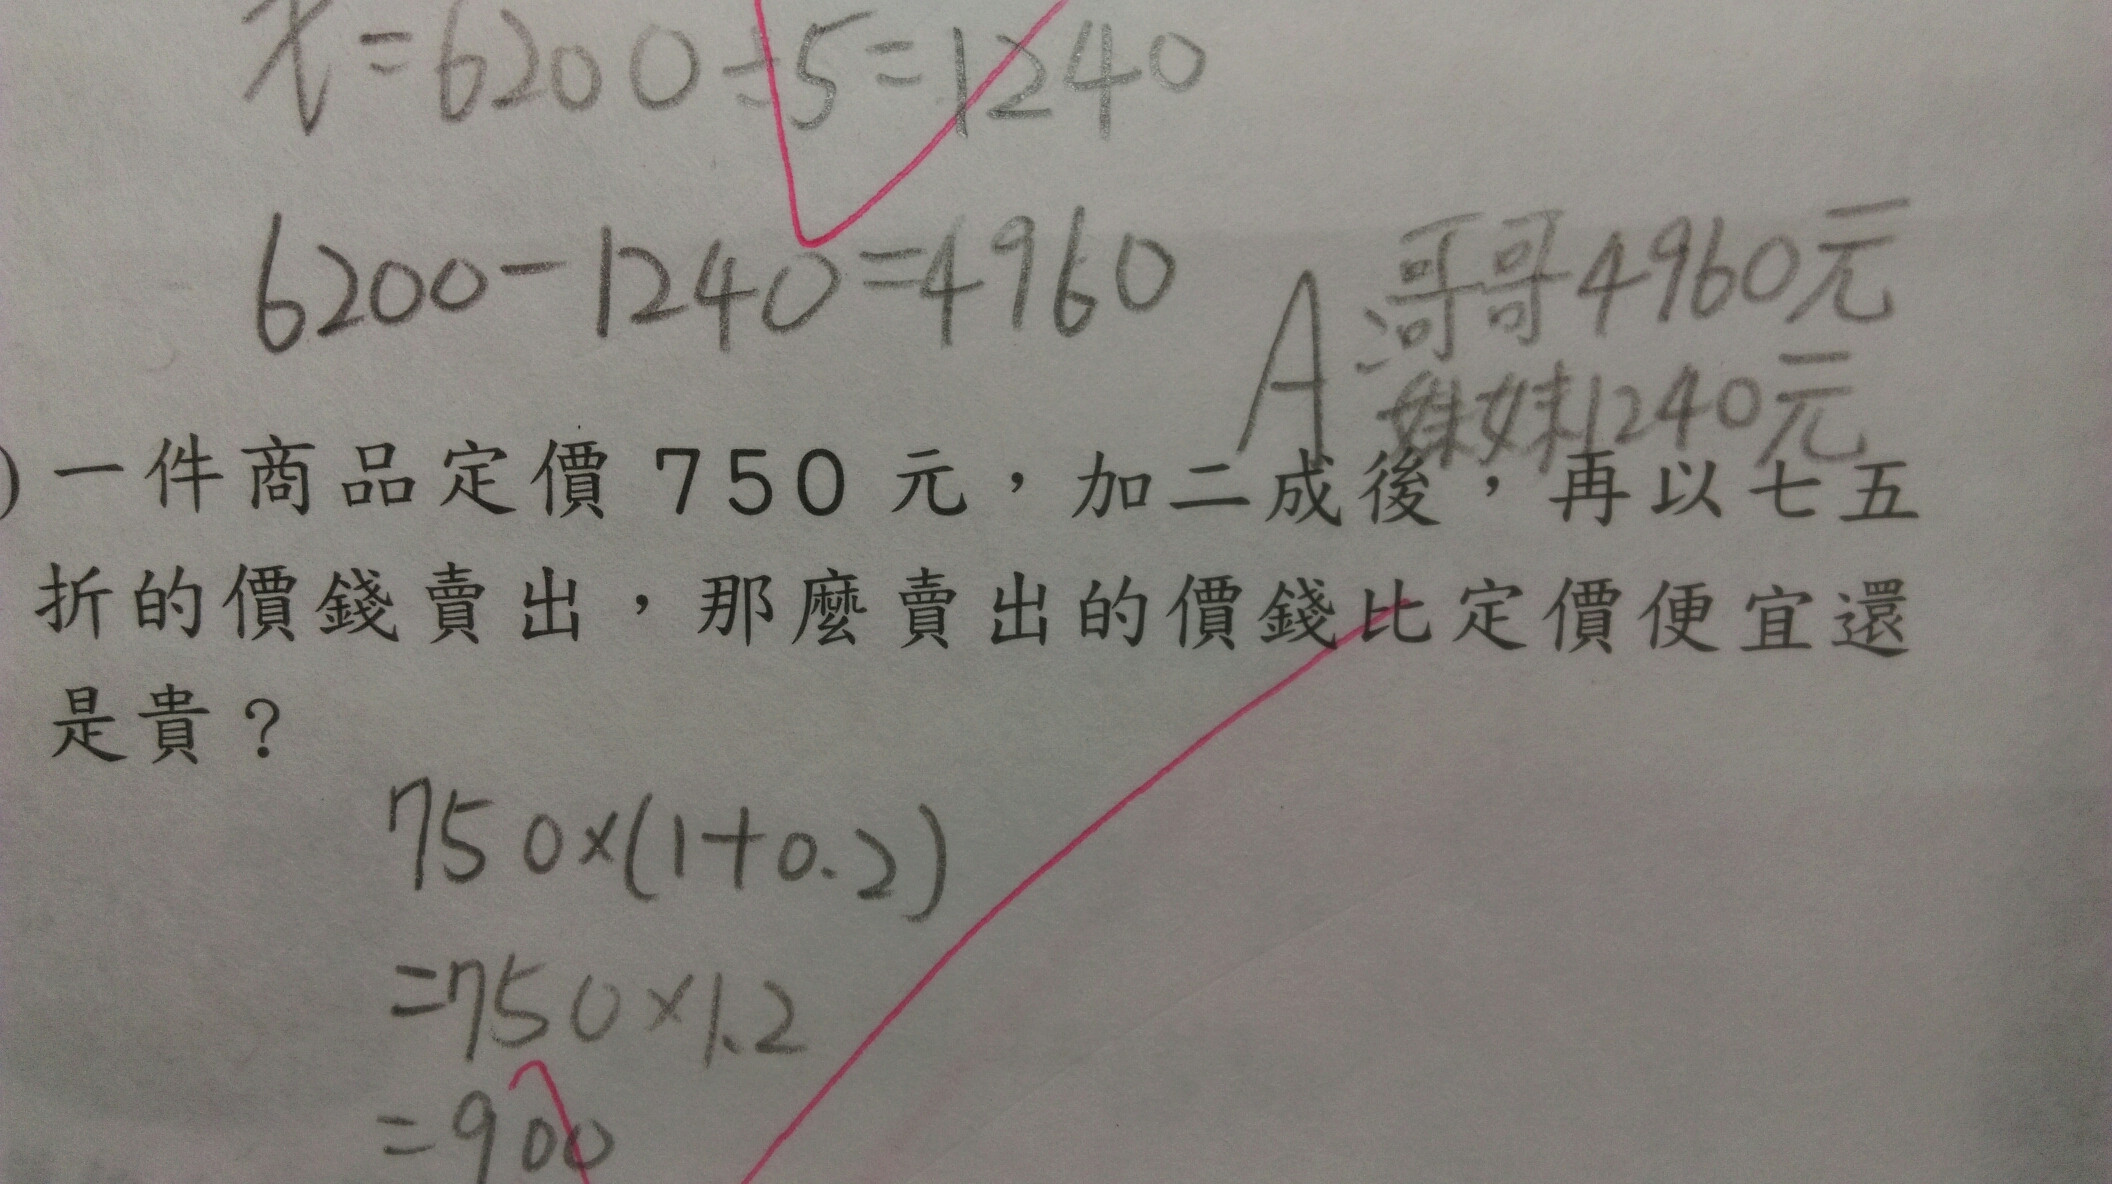 x=6200÷5=1240
6200-1240=4960
A:哥哥4960元
妹妹1240元
)一件商品定價750元,加二成後,再以七五
折的價錢賣出,那麼賣出的價錢比定價便宜還
是貴?
750×(1+0.2)
=750×1.2
=900